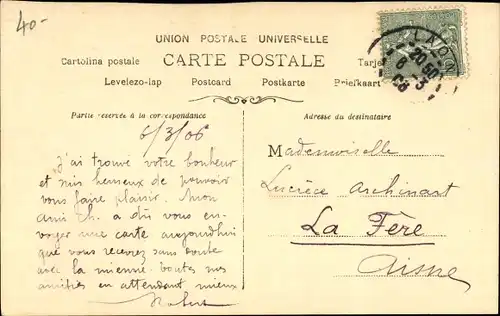 40-
UNION POSTALE UNIVERSELLE
CARTE POSTALE
Cartolina postale
Levelezo-lap Postcard Postkarte Briefkaart
LAON
20 50
6 - 3
06
Partie réservée à la correspondance
Adresse du destinataire
6/3/06
J'ai trouvé votre bonheur
et suis heureux de pouvoir
vous faire plaisir. Mon
ami Ch. a dû vous en-
voyer une carte aujourd'hui
que vous recevrez sans doute
avec la mienne. Toutes mes
amitiés en attendant mieux
Robert
Mademoiselle
Lucièce
La Fère
Aisne